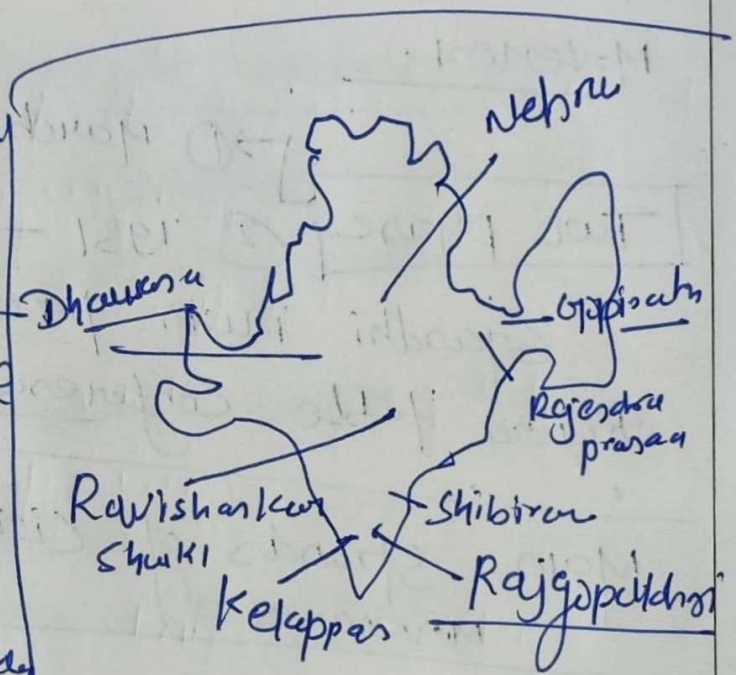 Nehru
Dharasna
Gopinath
Rajendra
prasad
Ravishankar
Shukl
Shibiron
Kelappan
Rajgopalchari